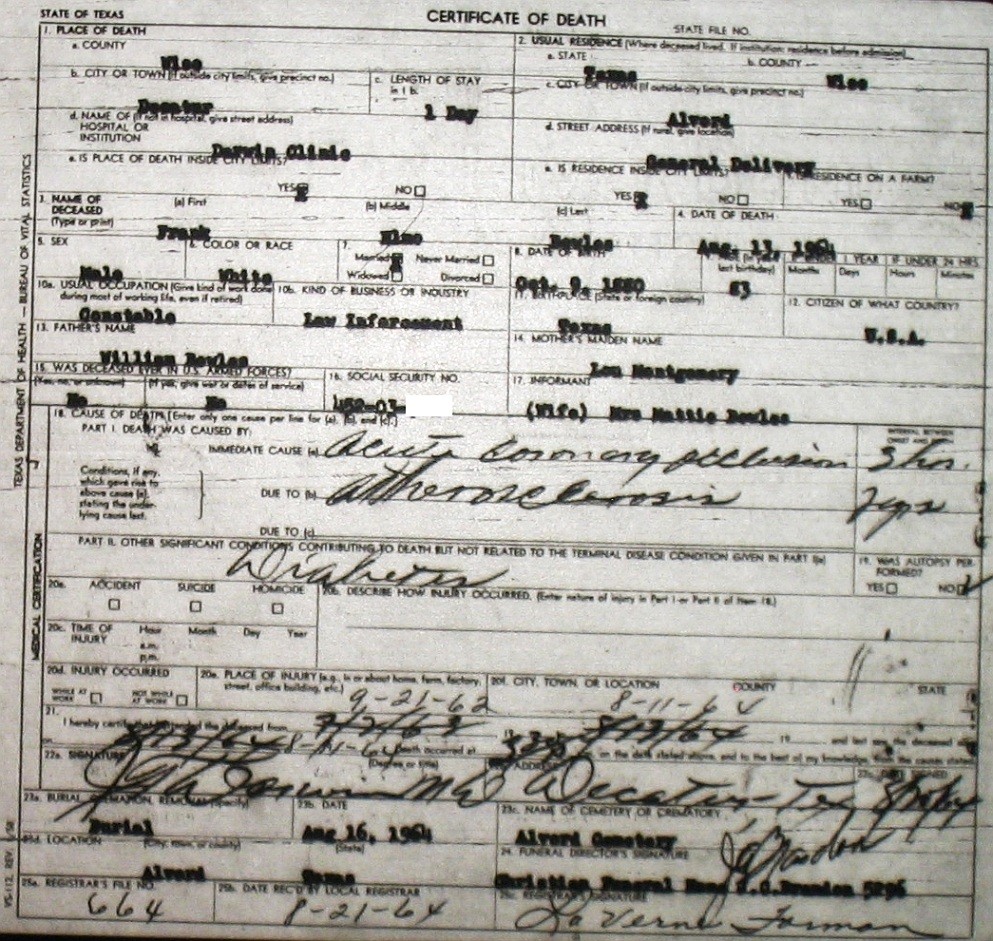 STATE OF TEXAS
CERTIFICATE OF DEATH
STATE FILE NO.
1. PLACE OF DEATH
a. COUNTY
Wise
2. USUAL RESIDENCE (Where deceased lived. If institution: residence before admission)
a. STATE
Texas
b. COUNTY
Wise
b. CITY OR TOWN (If outside city limits, give precinct no.)
Decatur
c. LENGTH OF STAY
in 1 b.
1 Day
c. CITY OR TOWN (If outside city limits, give precinct no.)
Alvord
d. NAME OF (If not in hospital, give street address)
HOSPITAL OR
INSTITUTION
Darwin Clinic
d. STREET ADDRESS (If rural, give location)
General Delivery
e. IS PLACE OF DEATH INSIDE CITY LIMITS?
YES NO
e. IS RESIDENCE INSIDE CITY LIMITS?
YES NO
RESIDENCE ON A FARM?
YES NO
3. NAME OF
DECEASED
(Type or print)
(a) First
Frank
(b) Middle
(c) Last
Bowles
4. DATE OF DEATH
Aug. 13, 1964
5. SEX
Male
6. COLOR OR RACE
White
7.
Married Never Married
Widowed Divorced
8. DATE OF BIRTH
Oct. 9, 1880
last birthday)
83
1 YEAR
Months Days
IF UNDER 24 HRS
Hours Minutes
10a. USUAL OCCUPATION (Give kind of work done
during most of working life, even if retired)
Constable
10b. KIND OF BUSINESS OR INDUSTRY
Law Inforcement
11. BIRTHPLACE (State or foreign country)
Texas
12. CITIZEN OF WHAT COUNTRY?
U.S.A.
13. FATHER'S NAME
William Bowles
14. MOTHER'S MAIDEN NAME
Lou Montgomery
15. WAS DECEASED EVER IN U.S. ARMED FORCES?
(Yes, no, or unknown) (If yes, give war or dates of service)
No No
16. SOCIAL SECURITY NO.
452-03-
17. INFORMANT
(Wife) Mrs Mattie Bowles
18. CAUSE OF DEATH [Enter only one cause per line for (a), (b), and (c).]
PART I. DEATH WAS CAUSED BY:
IMMEDIATE CAUSE (a) Acute Coronary occlusion
INTERVAL BETWEEN
3 hrs.
Conditions, if any,
which gave rise to
above cause (a),
stating the under-
lying cause last.
DUE TO (b) Atherosclerosis
yrs
DUE TO (c)
PART II. OTHER SIGNIFICANT CONDITIONS CONTRIBUTING TO DEATH BUT NOT RELATED TO THE TERMINAL DISEASE CONDITION GIVEN IN PART I(a)
Diabetes
19. WAS AUTOPSY PER-
FORMED?
YES NO
20a. ACCIDENT SUICIDE HOMICIDE
20b. DESCRIBE HOW INJURY OCCURRED. (Enter nature of injury in Part I or Part II of Item 18.)
20c. TIME OF
INJURY
Hour Month Day Year
a.m.
p.m.
20d. INJURY OCCURRED
WHILE AT
WORK
NOT WHILE
AT WORK
20e. PLACE OF INJURY (e.g., in or about home, farm, factory,
street, office building, etc.)
20f. CITY, TOWN, OR LOCATION COUNTY STATE
9-21-62 8-11-64
21.
I hereby certify that I attended the deceased from
Death occurred at on the date stated above, and to the best of my knowledge, from the causes stated.
22a. SIGNATURE
(Degree or title)
ADDRESS
SIGNED
MD Decatur Tex
23a. BURIAL, CREMATION, REMOVAL (Specify)
Burial
23b. DATE
Aug 16, 1964
23c. NAME OF CEMETERY OR CREMATORY
Alvord Cemetery
23d. LOCATION (City, town, or county) (State)
Alvord Texas
24. FUNERAL DIRECTOR'S SIGNATURE
Christian Funeral Home 5296
25a. REGISTRAR'S FILE NO.
664
25b. DATE REC'D BY LOCAL REGISTRAR
8-21-64
25c. REGISTRAR'S SIGNATURE
La Verne Forman
TEXAS DEPARTMENT OF HEALTH — BUREAU OF VITAL STATISTICS
MEDICAL CERTIFICATION
VS-112, REV. 1/58